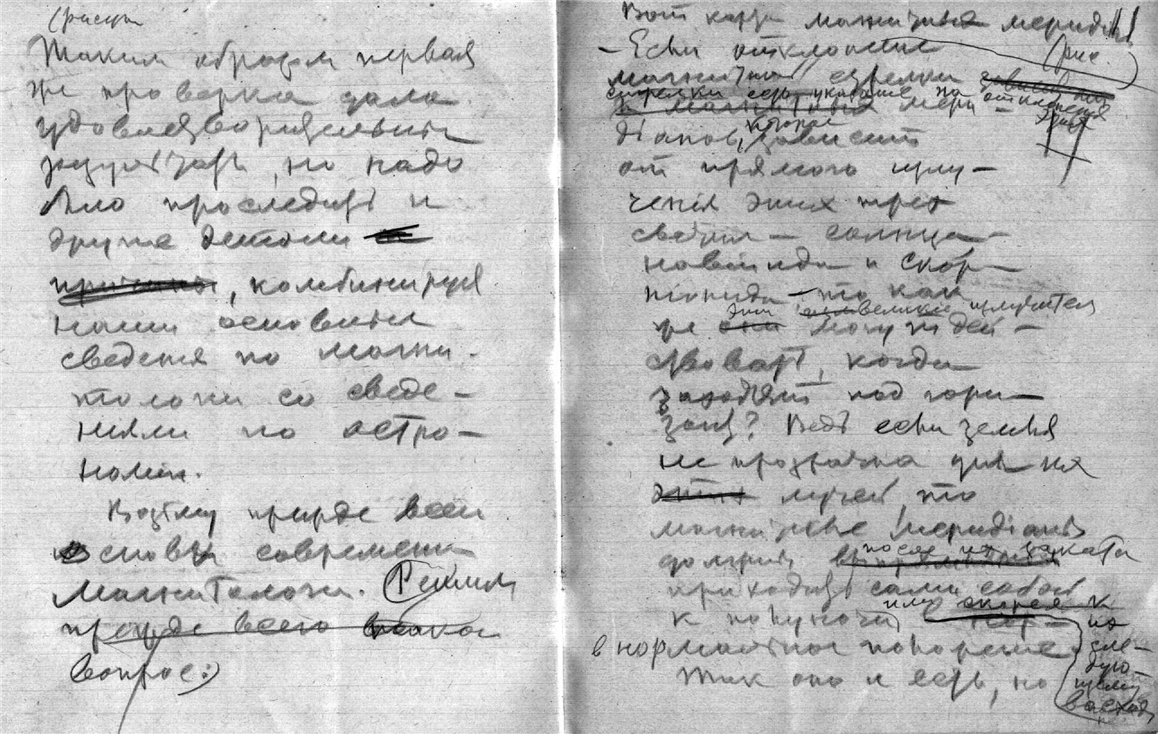 (рисун
Таким образом первая
же проверка дала
удовлетворительный
результат, но надо
было проследить и
другие детали
причины, комбинируя
наши основные
сведения по магни-
тологии со сведе-
ниями по астро-
номии.
Возьму прежде всего
основы современн
магнитологии. (Решим
прежде всего
вопрос:)
Вот карта магнитных меридiа
- Если отклонение
(рис.
магнитной стрелки зависит
стрелки есть указание на отклонения
к магнитных мери-
которое
дiанов, зависит
от прямого излу-
ченiя этих трех
светил - солнца
и Скор-
пiонида - то как
эти великие излучатели
же они могут дей-
ствовать, когда
заходят под гори-
зонт? Ведь если земля
не прозрачна для их
этих лучей, то
магнитные меридiаны
должны после их заката
приходить сами собой
или скорее к
в нормальное положение
по
сле-
дую-
щему
восходу
Так оно и есть, но